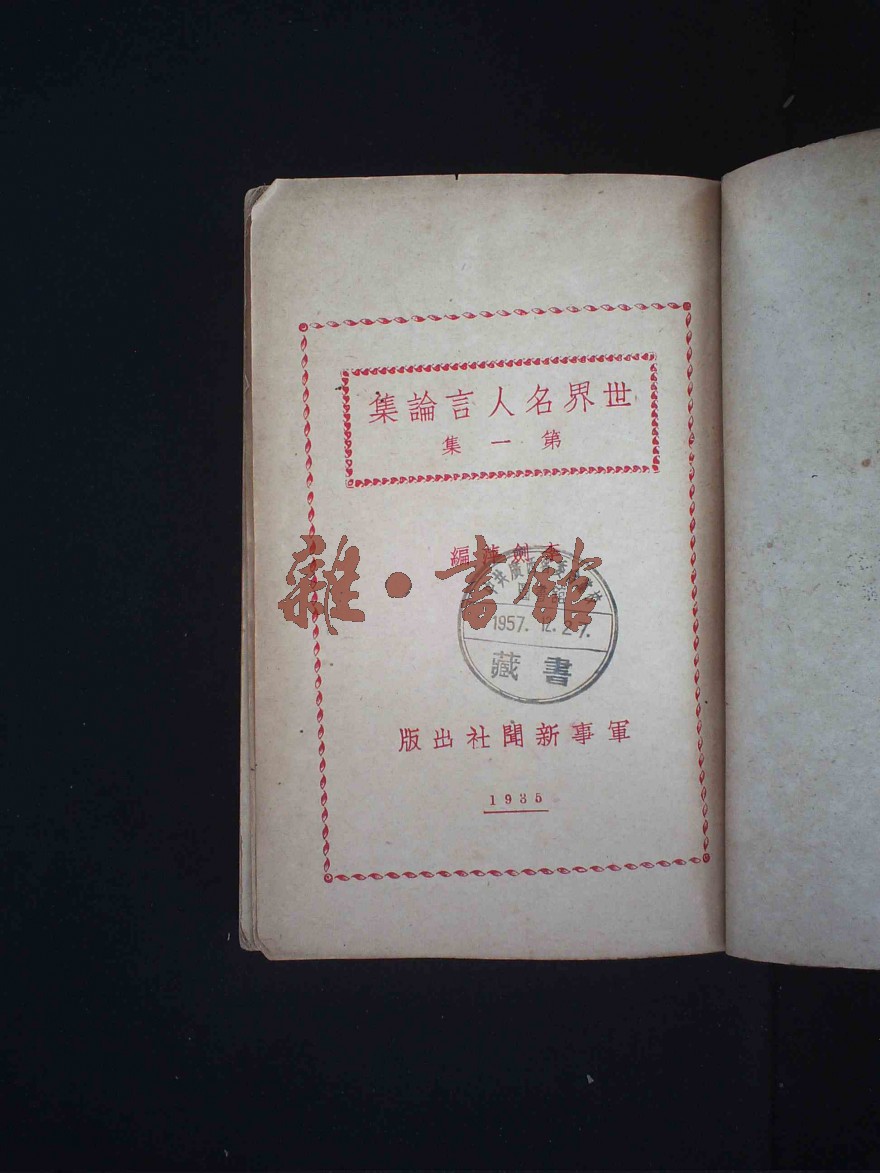 世界名人言論集
第一集
李劍萍編
雜·書館
1957. 12. 27.
藏書
軍事新聞社出版
1935